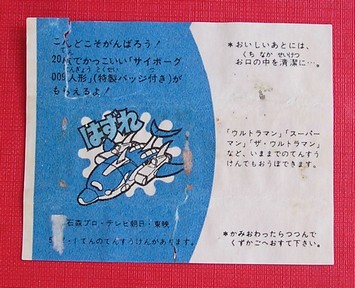 こんどこそがんばろう!
てん
20点でかっこいい「サイボーグ
にんぎょう とくせい
009人形」(特製バッジ付き)が
もらえるよ!
はずれ
石森プロ・テレビ朝日・東映
てんのてんすうけんがあります。
*おいしいあとには、
くち なか せいけつ
お口の中を清潔に…。
「ウルトラマン」「スーパー
マン」「ザ・ウルトラマン」
など、いままでのてんすう
けんでもおうぼできます。
*かみおわったらつつんで
くずかごへおすて下さい。